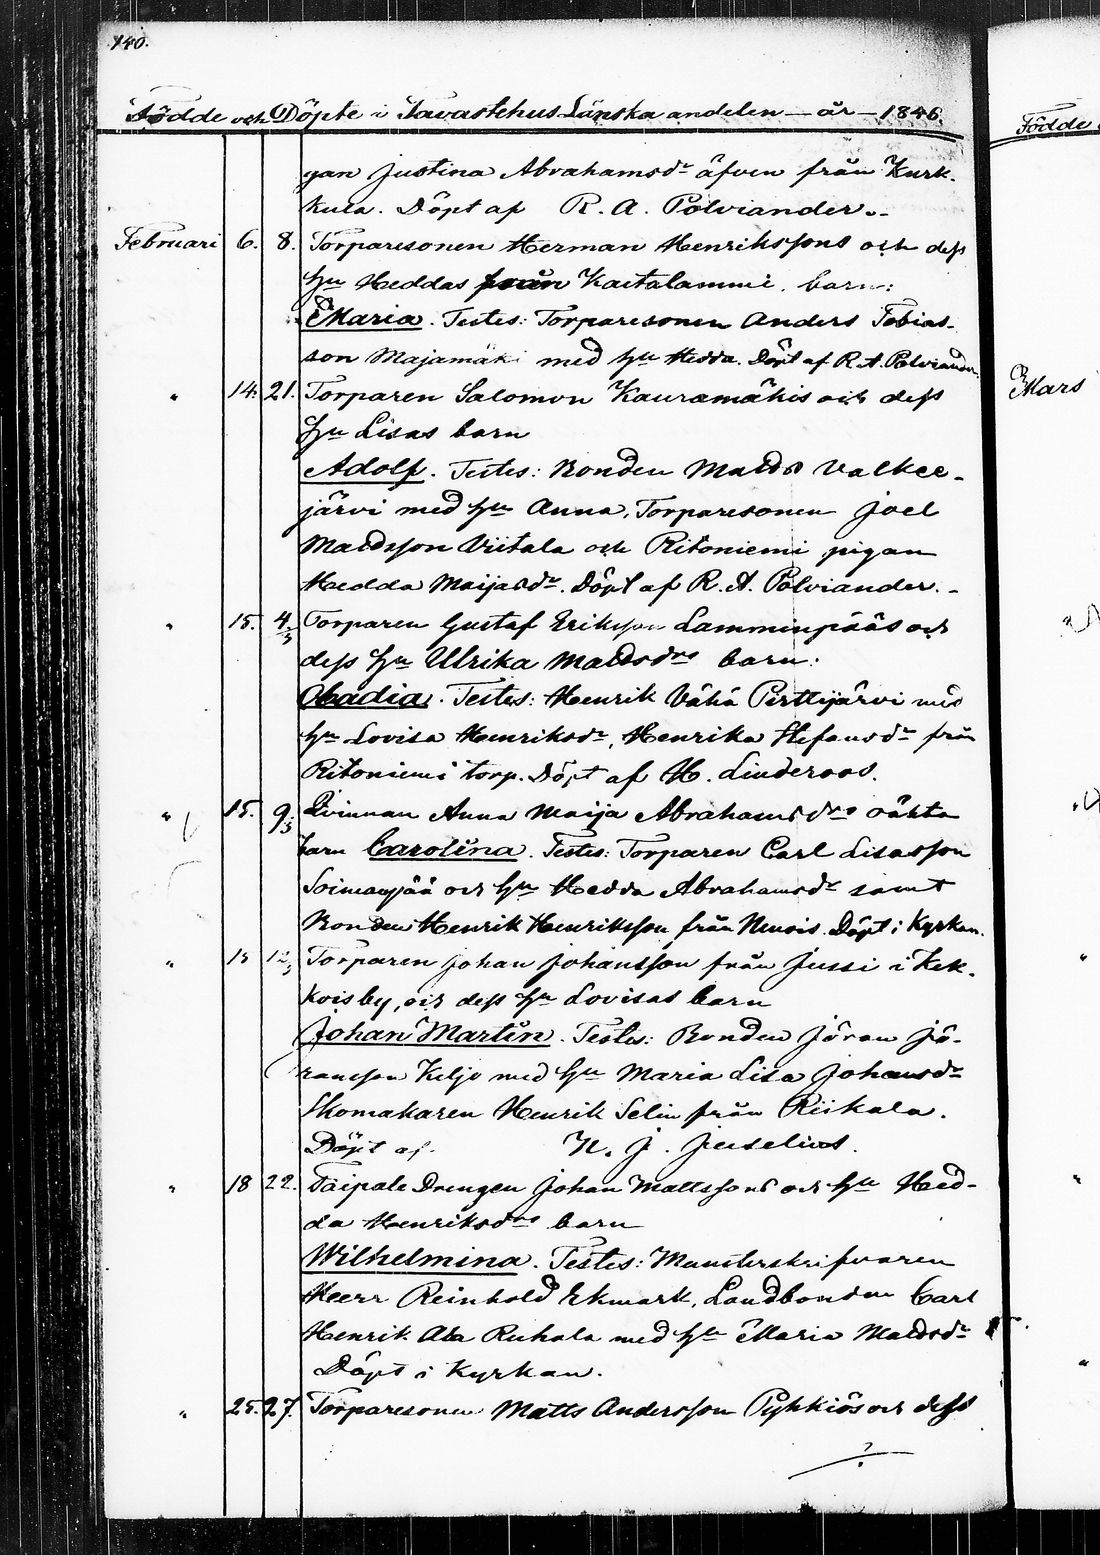 140.
Födde och Döpte i Tavastehus Länska andelen — år — 1846.
gan Justina Abrahamsdr äfven från Kurk-
kula. Döpt af R. A. Polviander.-
Februari 6. 8. Torparesonen Herman Henrikssons och dess
hu Heddas från Kaitalammi barn:
Maria. Testes: Torparesonen Anders Tobias-
son Majamäki med hu Hedda. Döpt af R. A. Polviander.
" 14. 21. Torparen Salomon Kauramäkis och dess
hu Lisas barn
Adolf. Testes: Bonden Matds Valkee-
järvi med hu Anna, Torparesonen Joel
Matdsson Viitala och Ritoniemi pigan
Hedda Maijasdr. Döpt af R. A. Polviander.-
" 15. 4/3 Torparen Gustaf Eriksson Lamminpääs och
dess hu Ulrika Matdsdrs barn:
Obadia. Testes: Henrik Vähä Perttijärvi med
hu Lovisa Henriksdr, Henrika Stefansdr från
Ritoniemi torp. Döpt af H. Linderoos.
" 15. 9/3 Qvinnan Anna Maija Abrahamsdrs oäkta
barn Carolina. Testes: Torparen Carl Lisasson
Soimanpää och hu Hedda Abrahamsdr samt
Bonden Henrik Henriksson från Nensis. Döpt i Kyrkan.
" 15 12/3 Torparen Johan Johansson från Jussi i Kek-
kois by, och dess hu Lovisas barn
Johan Martin. Testes: Bonden Jöran Jö-
ransson Keljo med hu Maria Lisa Johansdr
Skomakaren Henrik Selin från Riikala.
Döpt af N. J. Juselius.
" 18 22. Taipale Drengen Johan Mattssons och hu Hed-
da Henriksdrs barn
Wilhelmina. Testes: Munsterskrifvaren
Herr Reinhold Ekmark, Landbonden Carl
Henrik Ala Ruhala med hu Maria Matdsdr
Döpt i Kyrkan.
" 25. 27. Torparesonen Matts Andersson Pyhkiös och dess
Födde
Mars